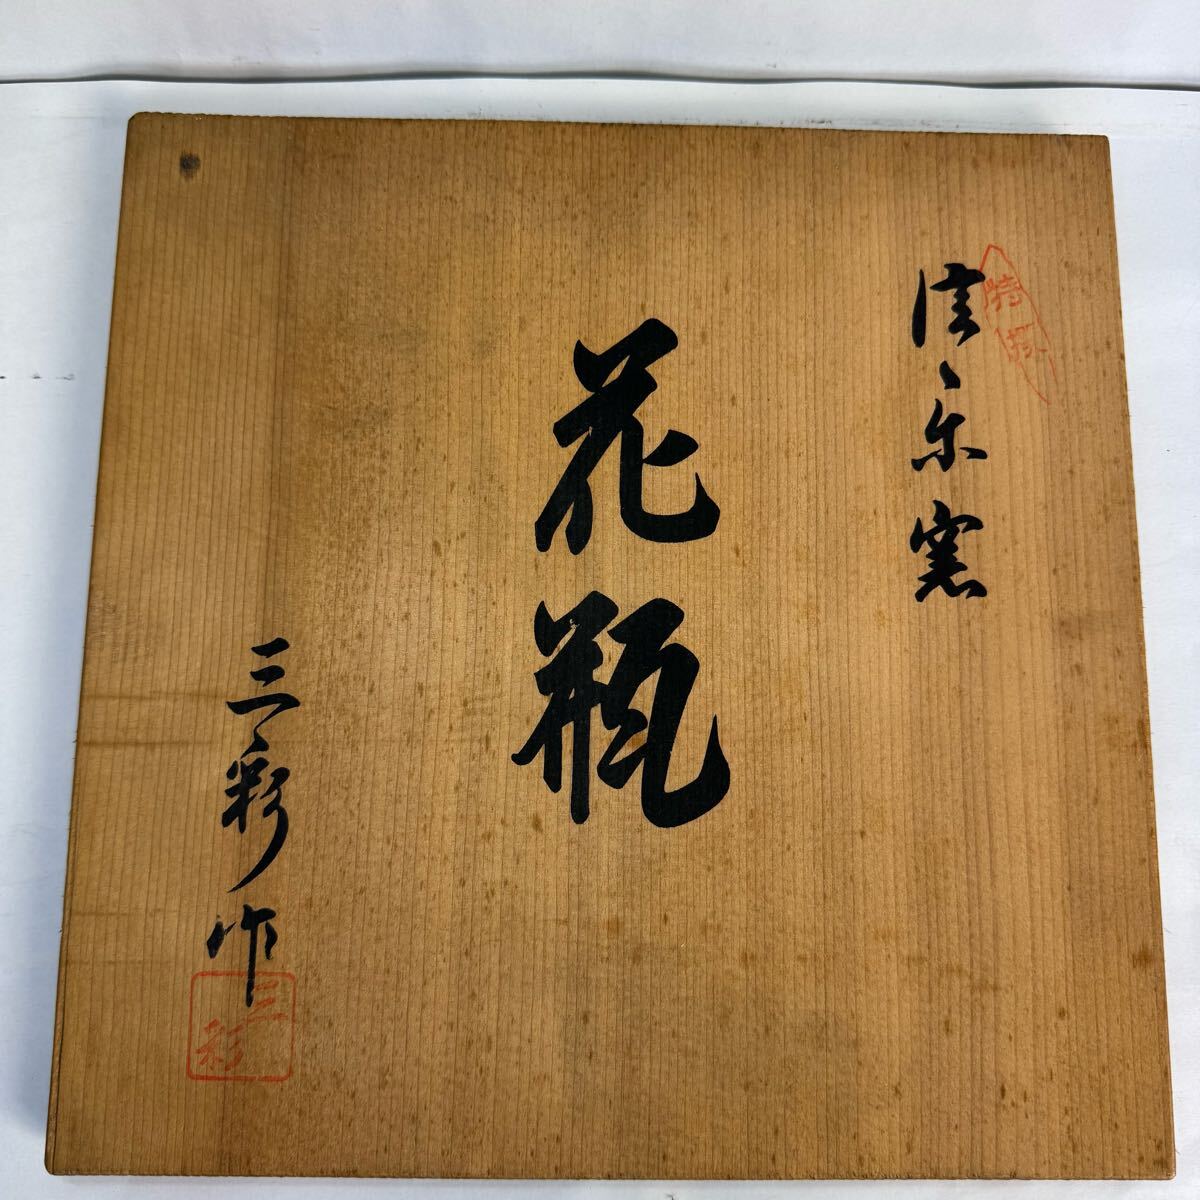 信楽窯
花瓶
三彩作
三彩